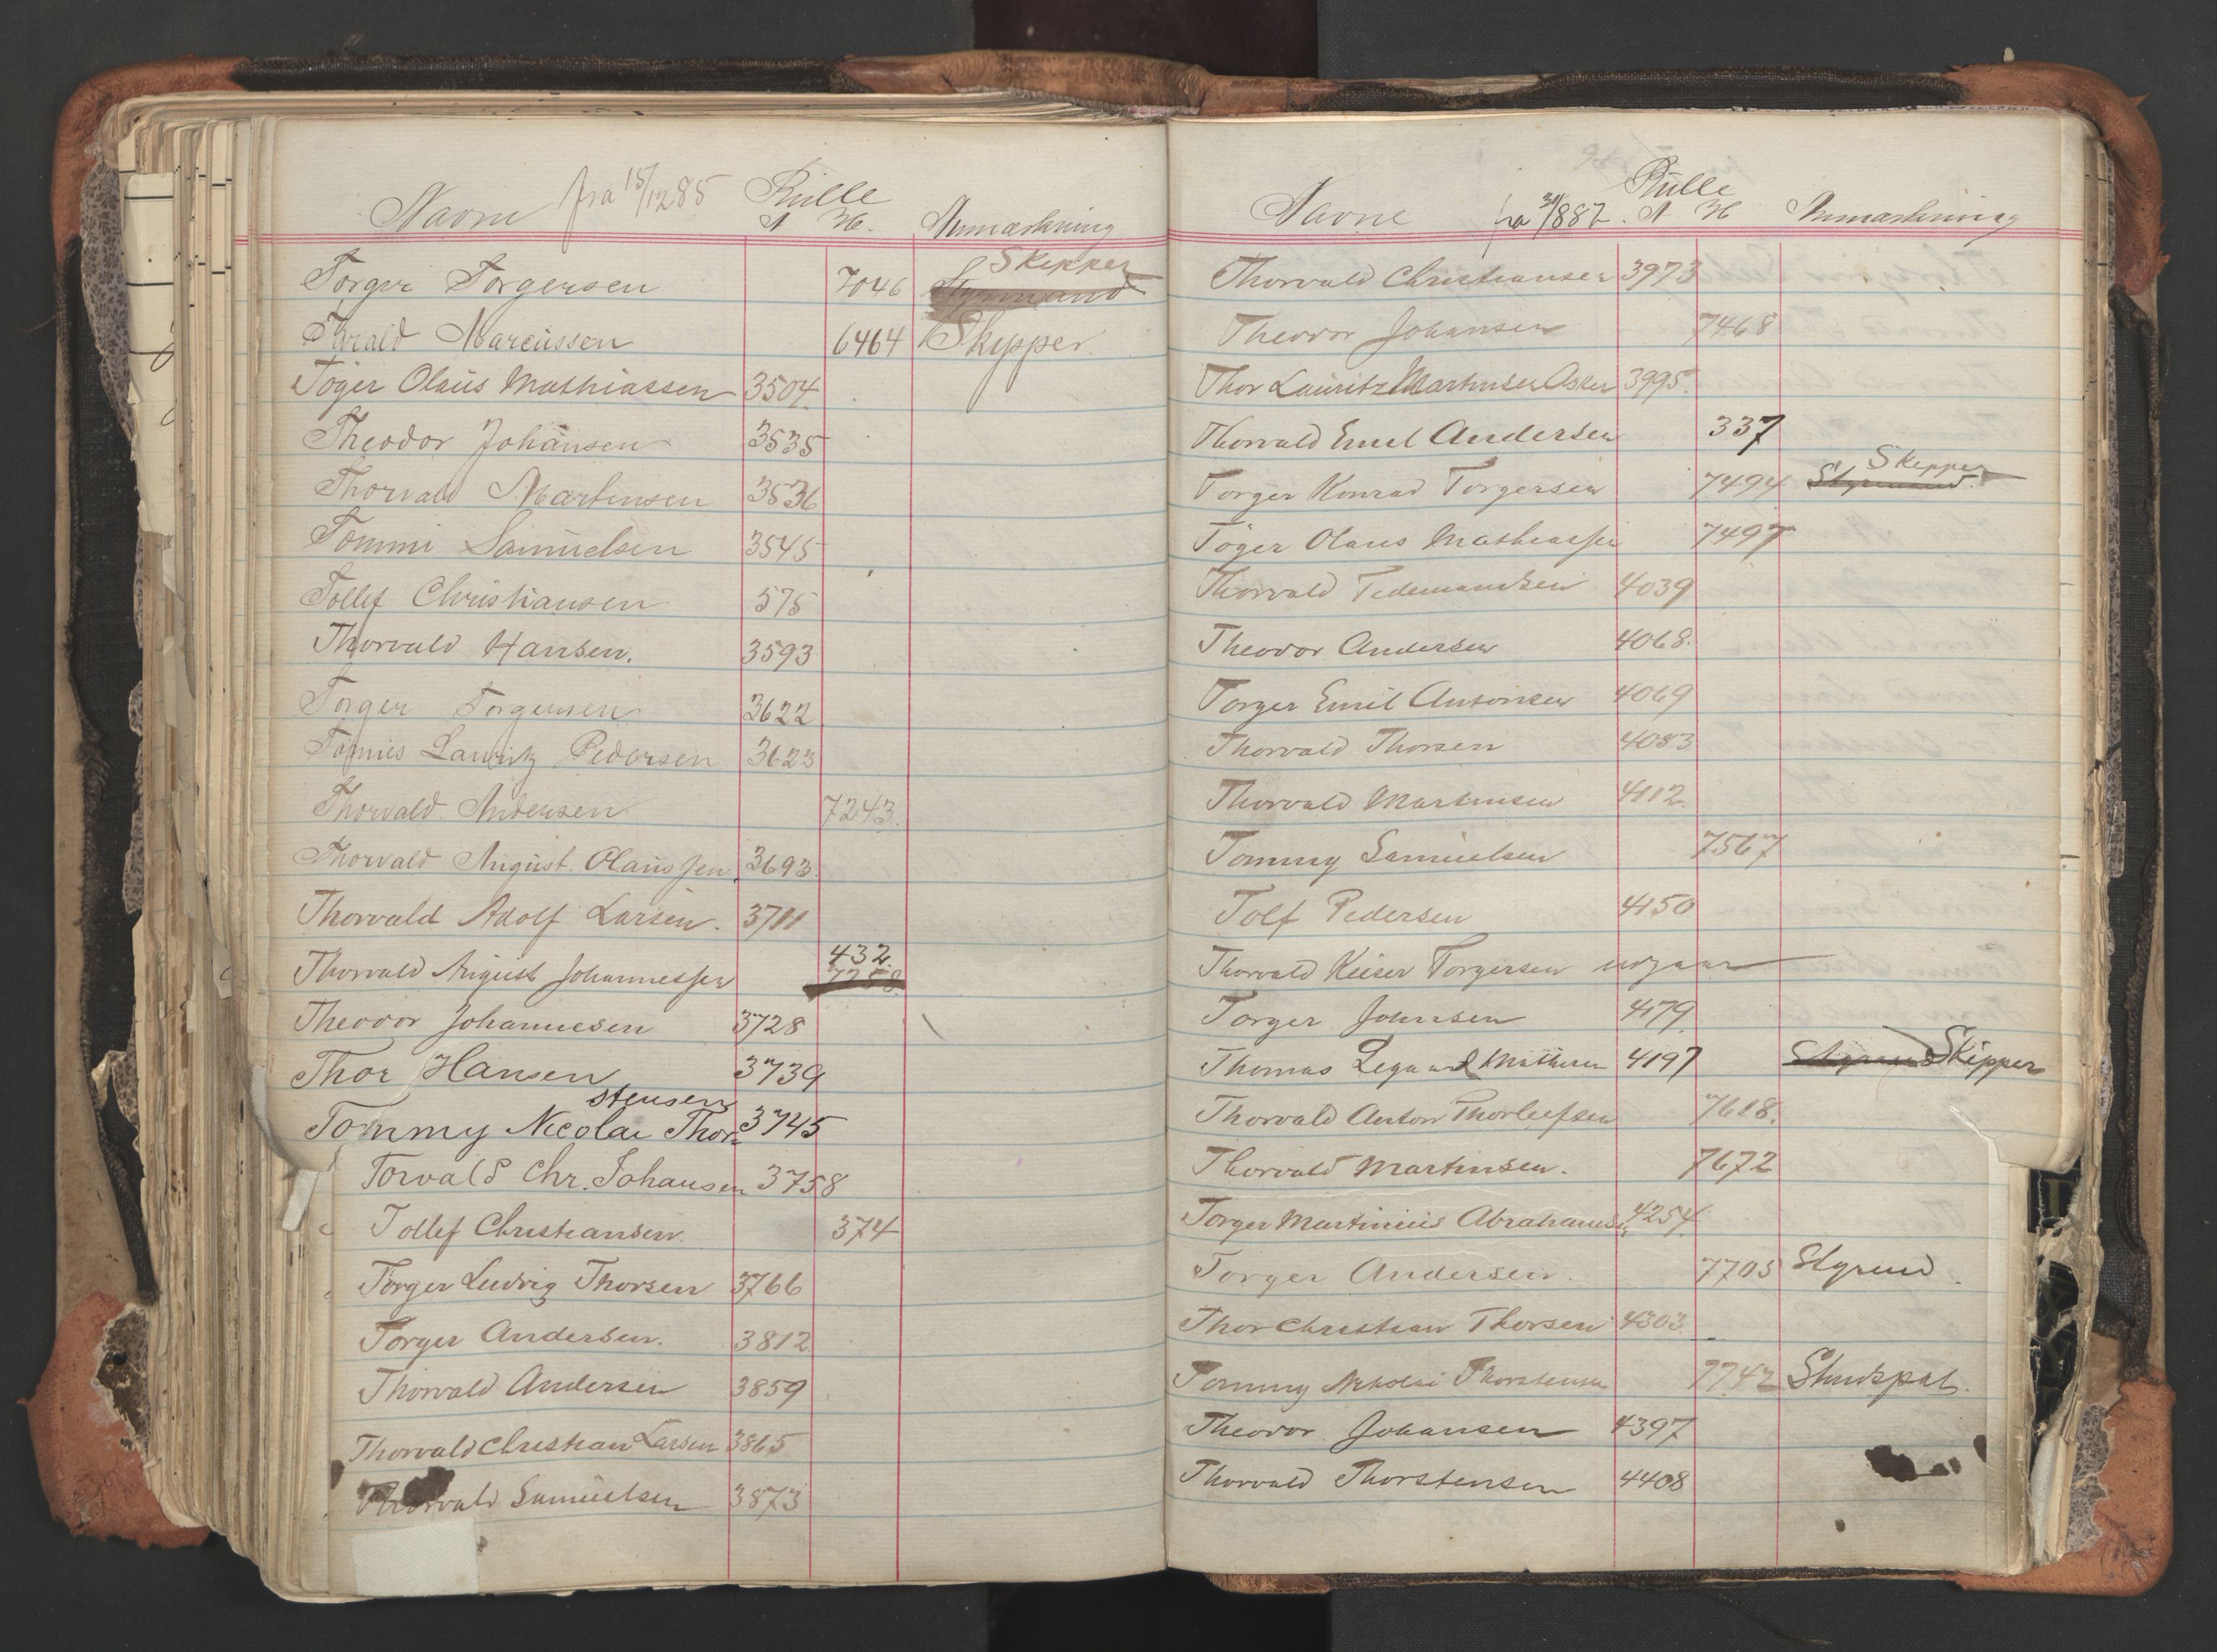 Navne fra 15/12 85 Rulle
A H. Anmærkning
Torger Torgersen 7046 Skipper Styrmand
Thrald Marcussen 6464 Skipper
Töger Olaus Mathiassen 3504
Theodor Johansen 3535
Thorvald Martinsen 3536
Tommi Samuelsen 3545
Tollef Christiansen 575
Thorvald Hansen. 3593
Torger Torgersen 3622
Lauritz Pedersen 3623
Thorvald Andersen 7243.
Thorvald August Olaussen 3693
Thorvald Adolf Larsen. 3711
Thorvald August Johannessen 432. 7258
Theodor Johannesen 3728
Thor Hansen 3739
Tommy Nicolai Thorstensen 3745
Torvald Chr. Johansen 3758
Tollef Christiansen. 374
Törger Ludvig Thorsen 3766
Torger Andersen. 3812
Thorvald Andersen 3859
Thorvald Christian Larsen 3865
Thorvald Samuelsen 3873
Navne fra 30/8 87. Rulle
A H Anmærkning
Thorvald Christiansen 3973
Theodor Johansen 7468
Thor Lauritz Martinsen Asker 3995.
Thorvald Emil Andersen 337
Torger Konrad Torgersen 7494 Skipper Styrmand
Töger Olaus Mathiassen 7497
Thorvald Tidemandsen 4039
Theodor Andersen 4068.
Torger Emil Antonsen 4069
Thorvald Thorsen 4083
Thorvald Martinsen 4112.
Tommy Samuelsen 7567
Tolf Pedersen 4150
Thorvald Keiser Torgersen udgaar
Torger Johnsen 4179.
Thomas Legaard 4197 Styrmd Skipper
Thorvald Anton Thorleifsen 7618.
Thorvald Martinsen. 7672
Torger Martinius Abrahamsen 4254.
Torger Andersen. 7705 Styrmd.
Thor Christian Thorsen 4303
Tommy Nikolai Thorstensen 7742
Theodor Johansen 4397
Thorvald Thorstensen 4408